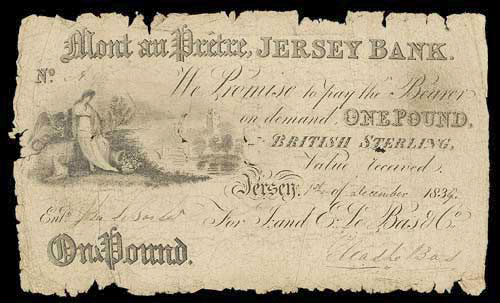 Mont au Prêtre, JERSEY BANK.
No.
We Promise to pay the Bearer
on demand, ONE POUND,
BRITISH STERLING,
Value received.
Jersey, 1st of December 183
Entd.
For J. and E. Le Bas & Co.
One Pound.
Le Bas